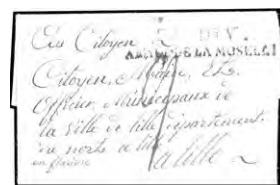 Aux Citoyen
DIV.
ARMÉE DE LA MOSELLE
Citoyen, Maire, Et
Officier, Municipaux de
la ville de lille département
du nord a lille
en flandre
a lille